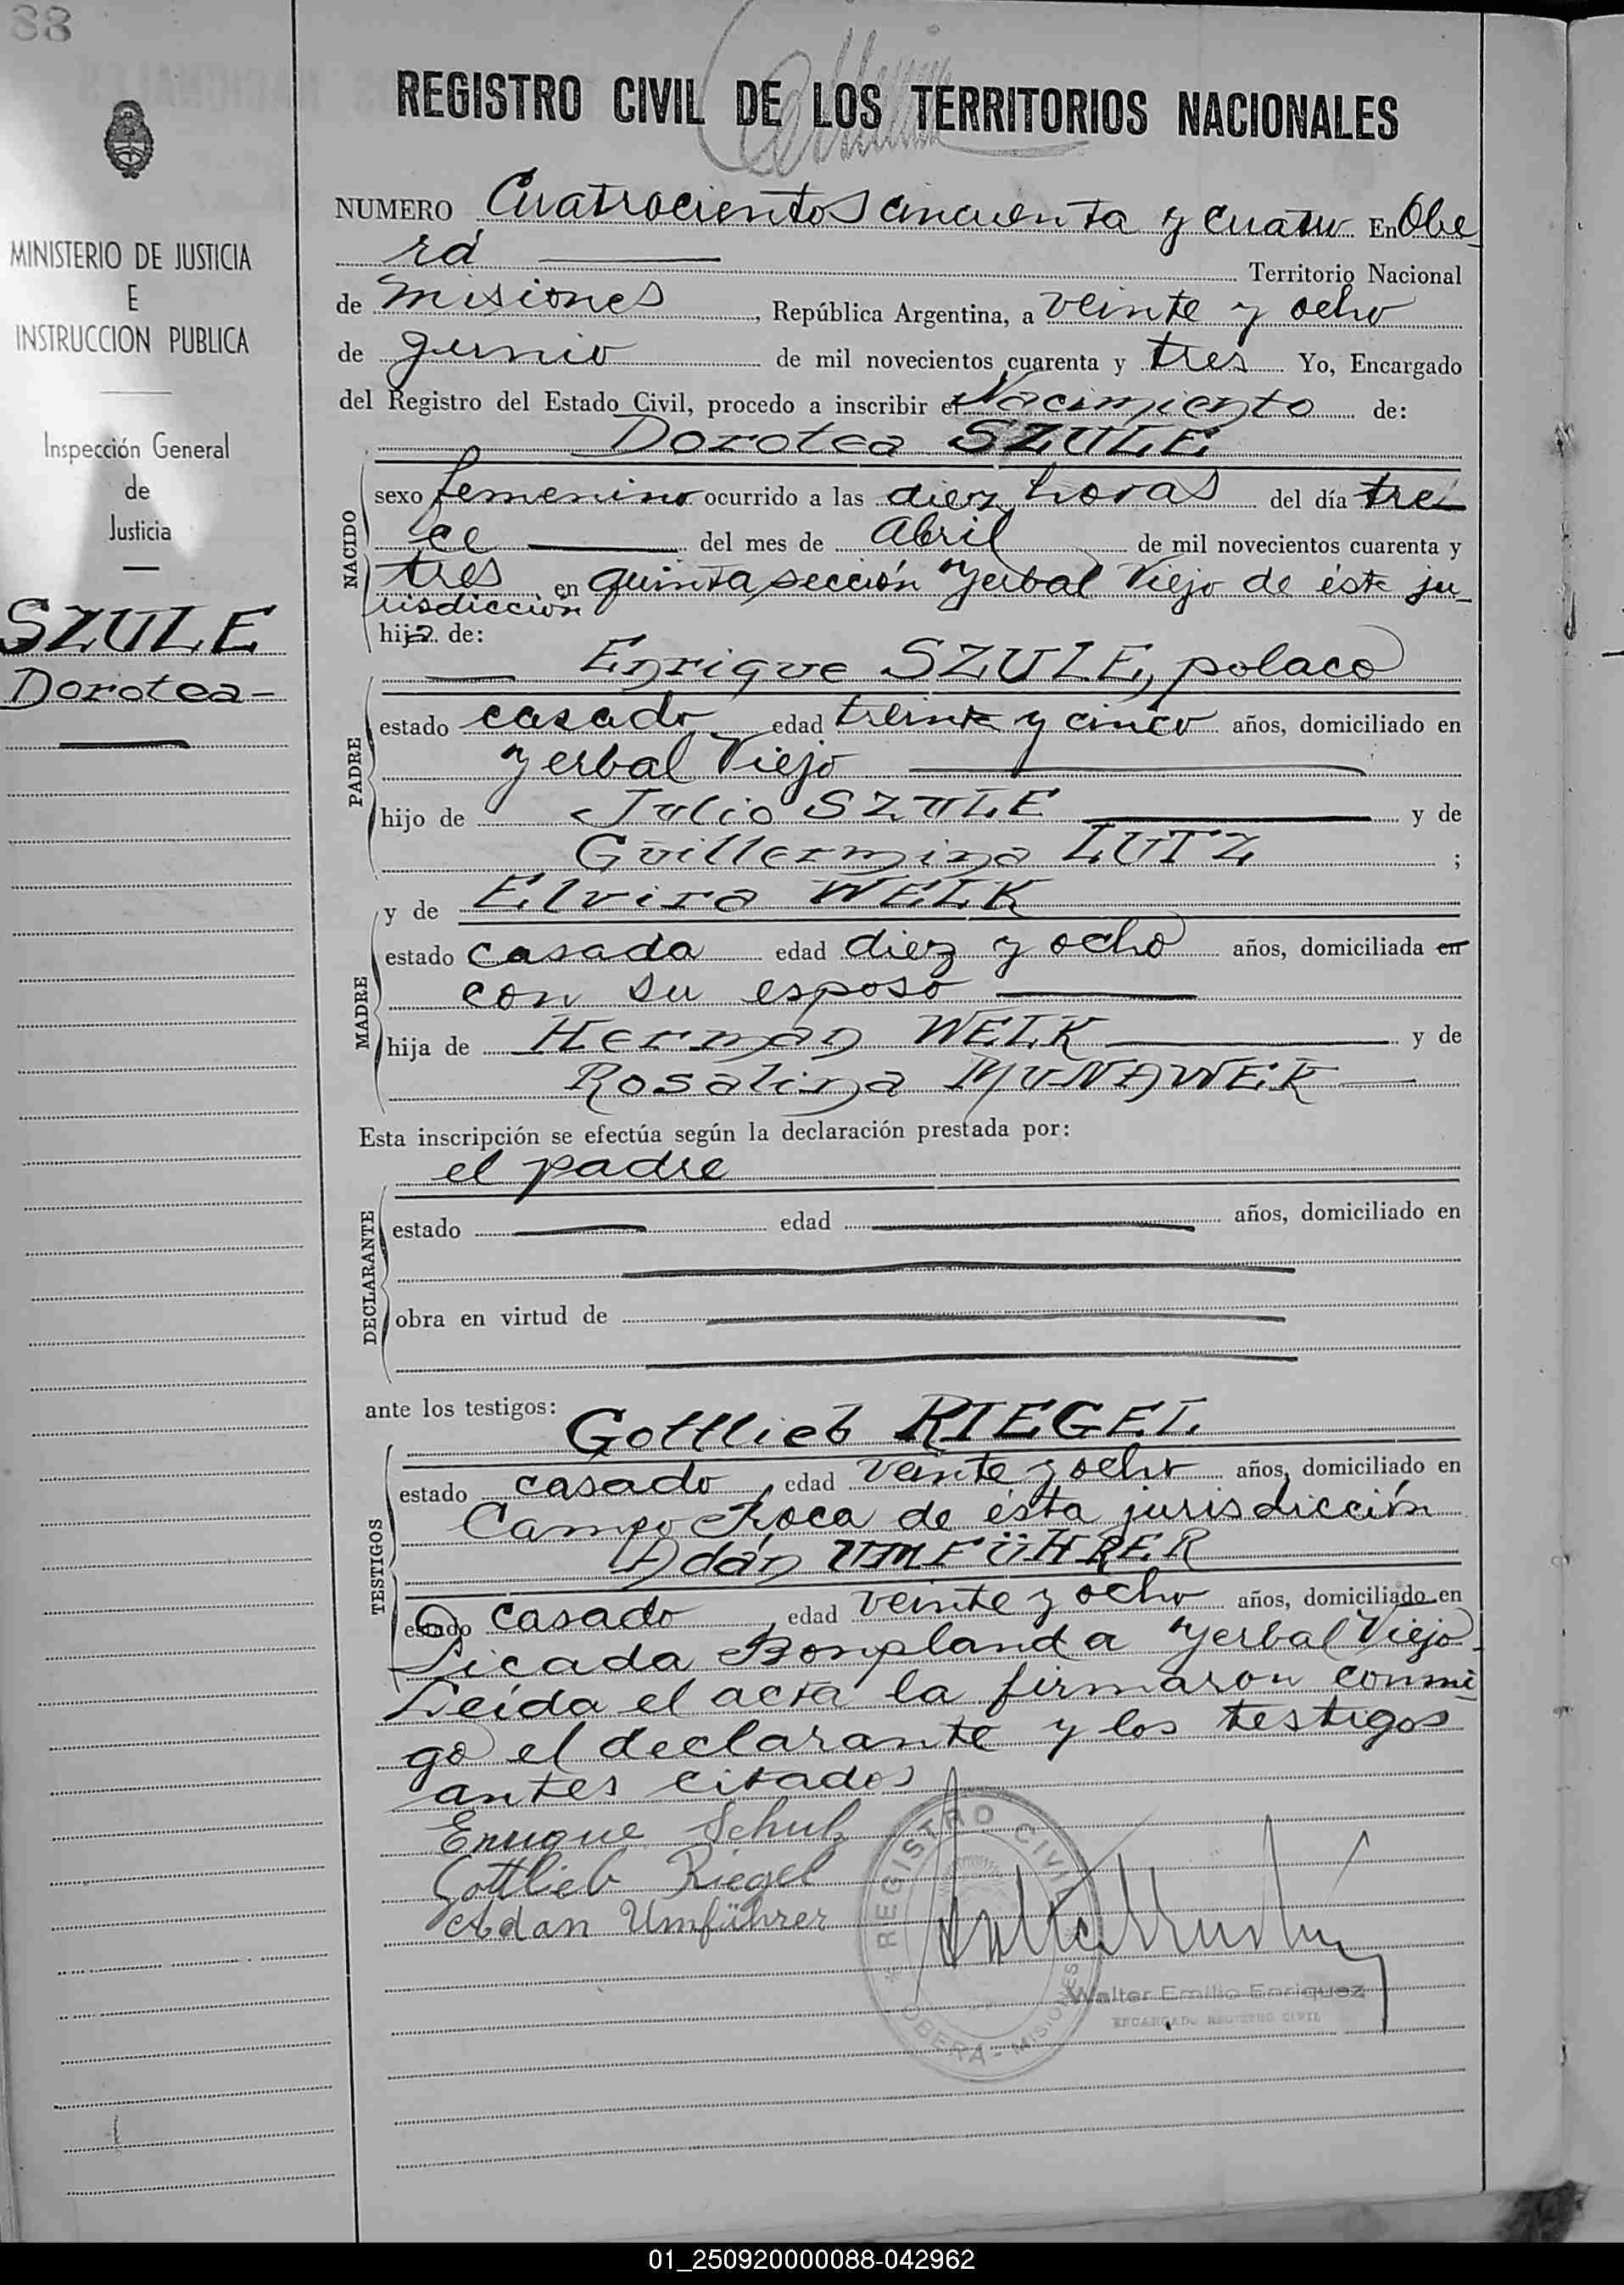 88
REGISTRO CIVIL DE LOS TERRITORIOS NACIONALES
MINISTERIO DE JUSTICIA
E
INSTRUCCION PUBLICA
Inspección General
de
Justicia
SZULE
Dorotea
NUMERO Cuatrocientos cincuenta y cuatro En Obe
rá Territorio Nacional
de Misiones, República Argentina, a veinte y ocho
de junio de mil novecientos cuarenta y tres Yo, Encargado
del Registro del Estado Civil, procedo a inscribir el Nacimiento de:
Dorotea SZULE
NACIDO
sexo femenino ocurrido a las diez horas del día tre
ce del mes de Abril de mil novecientos cuarenta y
tres en quinta sección Yerbal Viejo de ésta ju-
risdicción
hija de:
Enrique SZULE, polaco
PADRE
estado casado edad treinta y cinco años, domiciliado en
Yerbal Viejo
hijo de Julio SZULE y de
Guillermina LUTZ ;
y de Elvira WELK
MADRE
estado casada edad diez y ocho años, domiciliada en
con su esposo
hija de Herman WELK y de
Rosalina
Esta inscripción se efectúa según la declaración prestada por:
el padre
DECLARANTE
estado edad años, domiciliado en
obra en virtud de
ante los testigos:
Gottlieb RIEGEL
TESTIGOS
estado casado, edad veinte y ocho años, domiciliado en
Campo Roca de ésta jurisdicción
Adán UMFÜHRER
estado casado, edad veinte y ocho años, domiciliado en
Picada Bonpland a Yerbal Viejo-
Leída el acta la firmaron conmi
go el declarante y los testigos
antes citados
Enrique Schulz
Gottlieb Riegel
Adan Umführer
REGISTRO CIVIL
OBERA - MISIONES
Walter Emilio Enriquez
ENCARGADO REGISTRO CIVIL
01_250920000088-042962